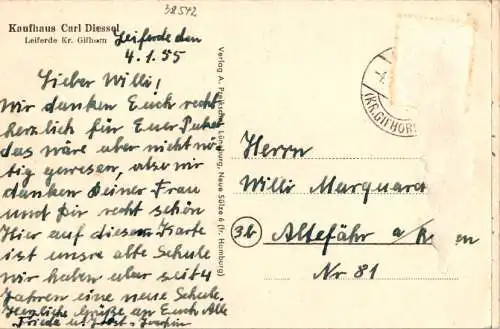 38542
Kaufhaus Carl Diessel
Leiferde Kr. Gifhorn
Leiferde den
4.1.55
Lieber Willi!
Wir danken Euch recht
herzlich für Euer Paket
das wäre aber nicht nö-
tig gewesen, also wir
danken Deiner Frau
und Dir recht schön
Hier auf dieser Karte
ist unsre alte Schule
wir haben aber seit 4
Jahren eine neue Schule.
Herzliche Grüße an Euch Alle
Friede u.
Verlag A. Lüneburg, Neue Sülze 6 (fr. Hamburg)
(KR.GIFHOR
Herrn
Willi Marquard
3b
Altefähr a/
Nr 81